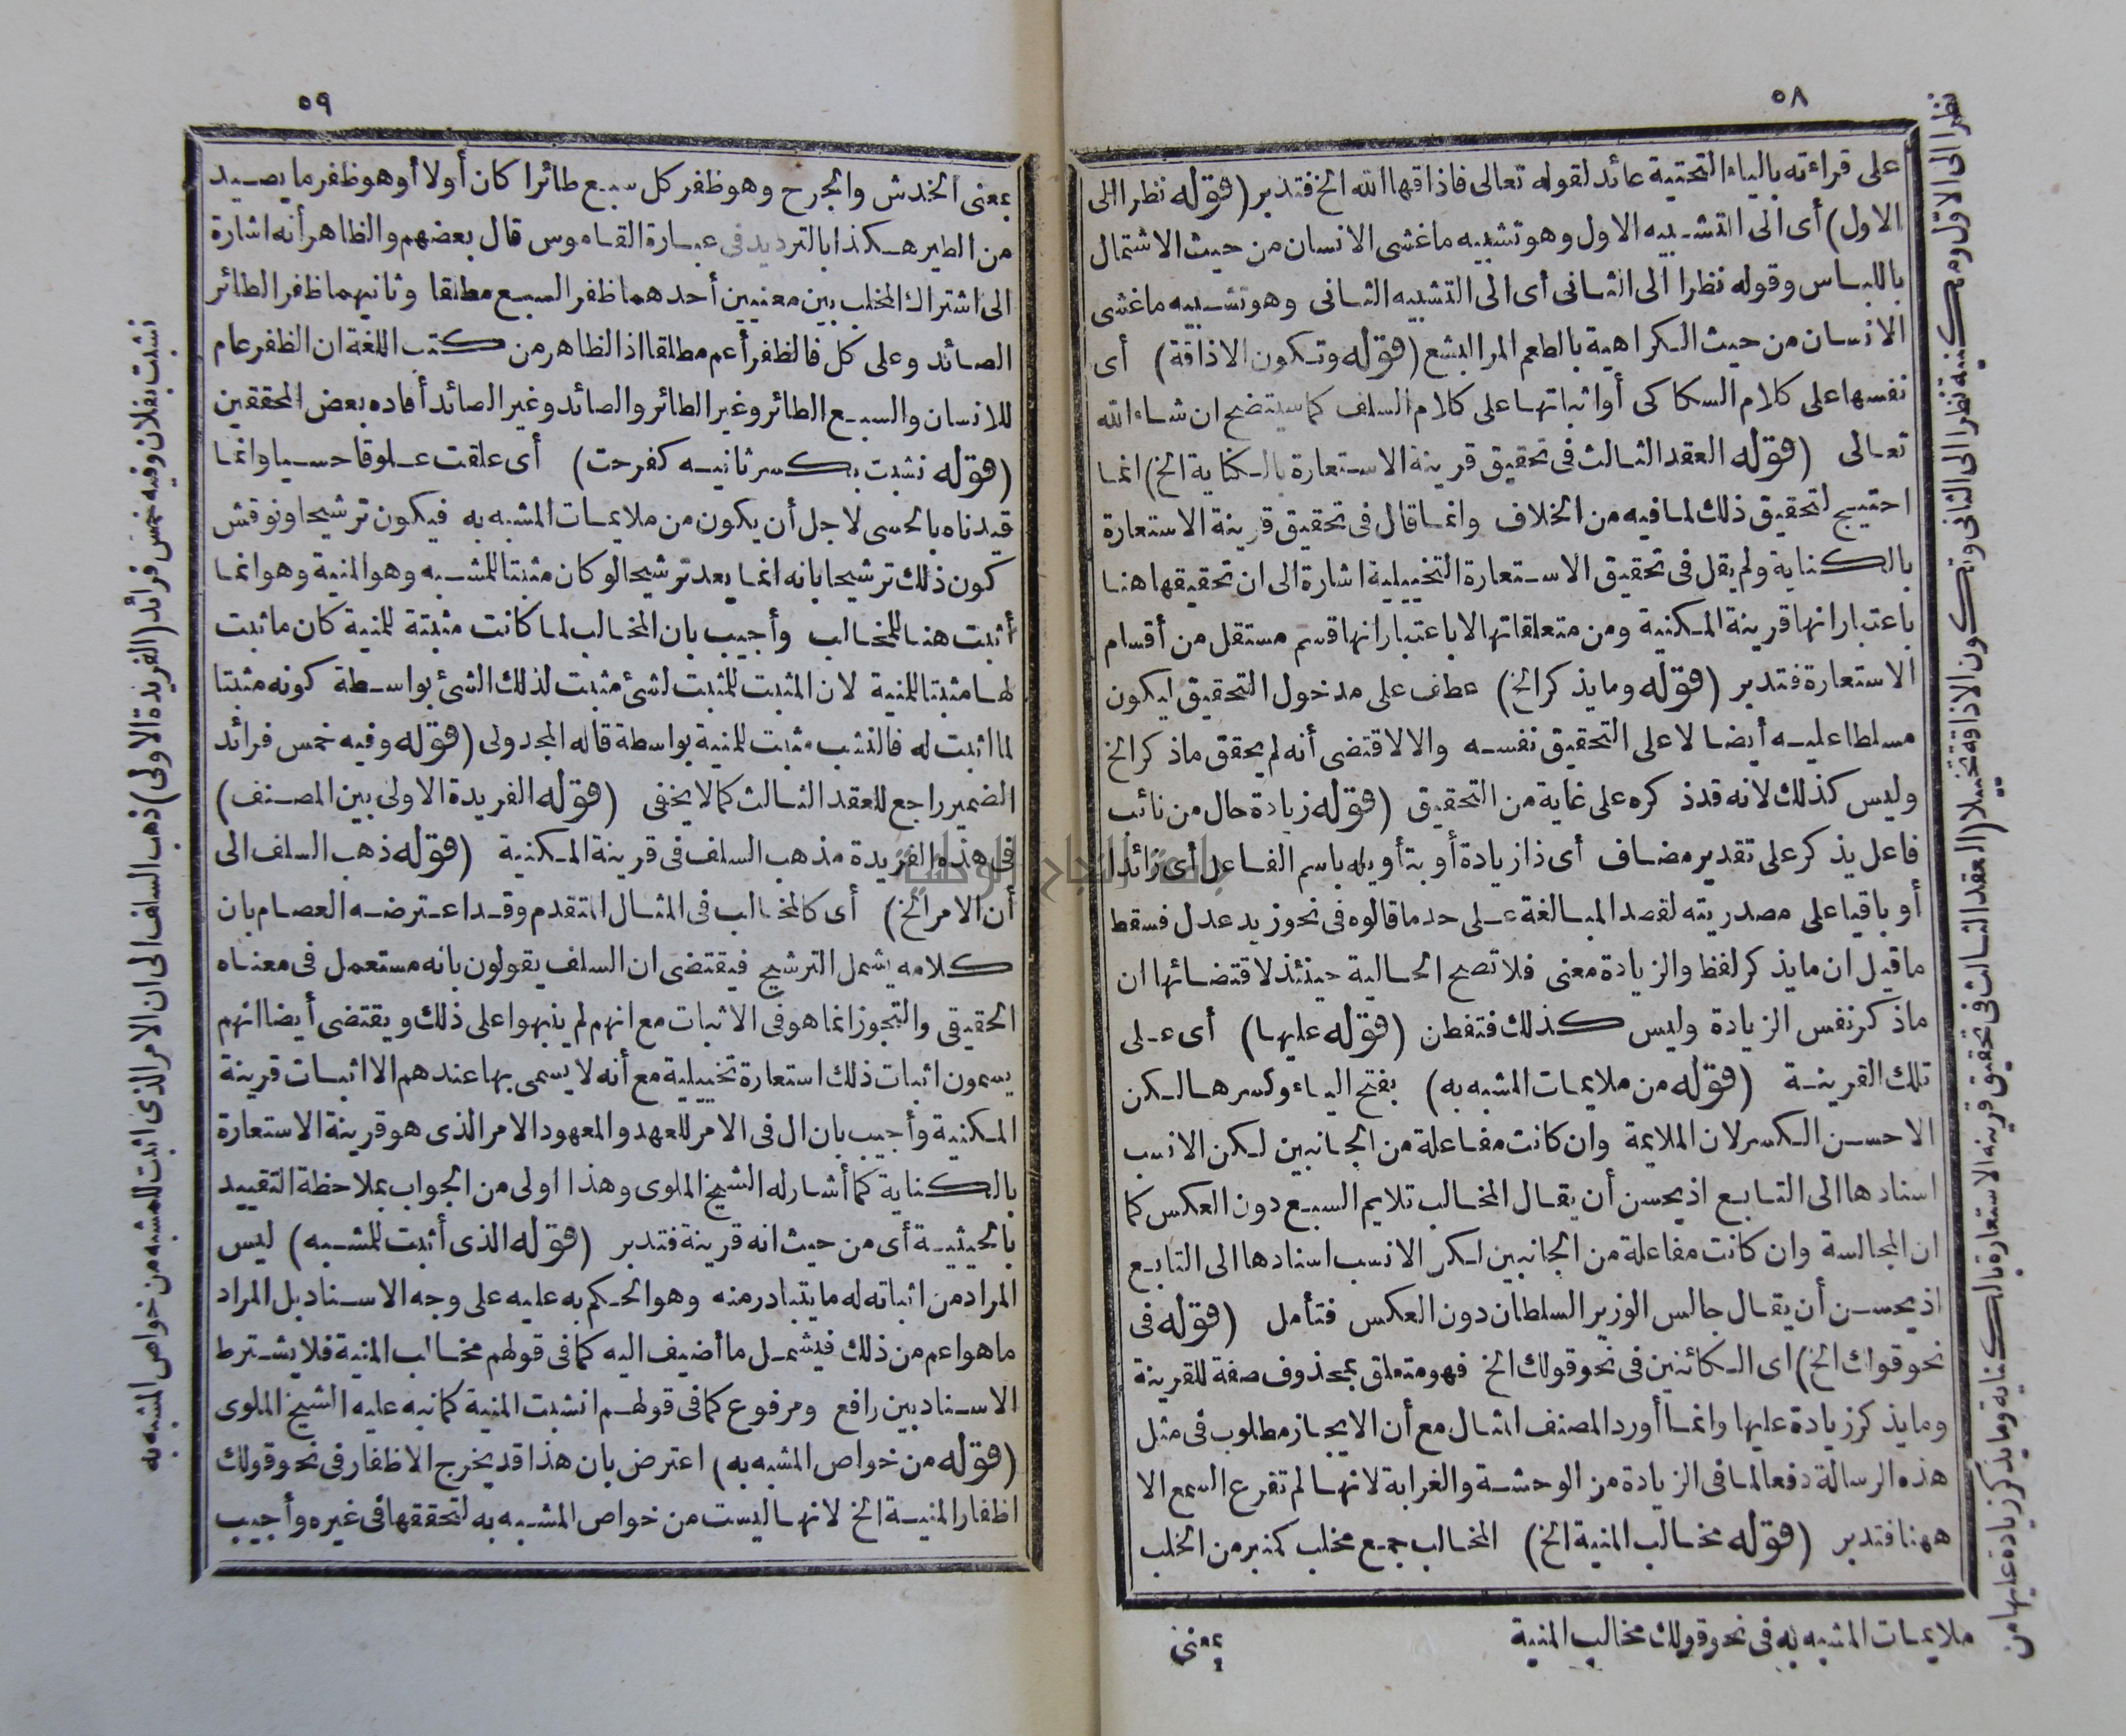 ٥٨
على قراءته بالياء التحتية عائد لقوله تعالى فاذاقها الله الخ فتدبر (قوله نظرا الى
الاول) أى الى التشبيه الاول وهو تشبيه ما غشى الانسان من حيث الاشتمال
باللباس وقوله نظرا الى الثانى أى الى التشبيه الثانى وهو تشبيه ما غشى
الانسان من حيث الكراهية بالطعم المر البشع (قوله وتكون الاذاقة) أى
نفسها على كلام السكاكى أو اثباتها على كلام السلف كما سيتضح ان شاء الله
تعالى (قوله العقد الثالث فى تحقيق قرينة الاستعارة بالكناية الخ) انما
احتيج لتحقيق ذلك لما فيه من الخلاف وانما قال فى تحقيق قرينة الاستعارة
بالكناية ولم يقل فى تحقيق الاستعارة التخييلية اشارة الى ان تحقيقها هنا
باعتبار انها قرينة المكنية ومن متعلقاتها لا باعتبار انها قسم مستقل من أقسام
الاستعارة فتدبر (قوله وما يذكر الخ) عطف على مدخول التحقيق ليكون
مسلطا عليه أيضا لا على التحقيق نفسه والا لاقتضى أنه لم يحقق ماذكر الخ
وليس كذلك لانه قد ذكره على غاية من التحقيق (قوله زيادة حال من نائب
فاعل يذكر على تقدير مضاف أى ذا زيادة أو بتأويله باسم الفاعل أى زائدا
أو باقيا على مصدريته لقصد المبالغة على حد ما قالوه فى نحو زيد عدل فسقط
ما قيل ان ما يذكر لفظ والزيادة معنى فلا تصح الحالية حينئذ لاقتضائها ان
ماذكر نفس الزيادة وليس كذلك فتفطن (قوله عليها) أى على
تلك القرينة (قوله من ملايمات المشبه به) بفتح الياء وكسرها لكن
الاحسن الكسر لان الملايمة وان كانت مفاعلة من الجانبين لكن الانسب
اسنادها الى التابع اذ يحسن أن يقال المخالب تلايم السبع دون العكس كما
ان المجالسة وان كانت مفاعلة من الجانبين لكن الانسب اسنادها الى التابع
اذ يحسن أن يقال جالس الوزير السلطان دون العكس فتأمل (قوله فى
نحو قولك الخ) اى الكائنين فى نحو قولك الخ فهو متعلق بمحذوف صفة للقرينة
وما يذكر زيادة عليها وانما أورد المصنف المثال مع أن الايجاز مطلوب فى مثل
هذه الرسالة دفعا لما فى الزيادة من الوحشة والغرابة لانها لم تقرع السمع الا
ههنا فتدبر (قوله مخالب المنية الخ) المخالب جمع مخلب كمنبر من الخلب
نظرا الى الاول ومكنية نظرا الى الثانى وتكون الاذاقة تخييلا (العقد الثالث فى تحقيق قرينة الاستعارة بالكناية وما يذكر زيادة عليها من
ملايمات المشبه به فى نحو قولك مخالب المنية
بمعنى
٥٩
بمعنى الخدش والجرح وهو ظفر كل سبع طائرا كان أولا أو هو ظفر ما يصيد
من الطير هكذا بالترديد فى عبارة القاموس قال بعضهم والظاهر أنه اشارة
الى اشتراك المخلب بين معنيين أحدهما ظفر السبع مطلقا وثانيهما ظفر الطائر
الصائد وعلى كل فالظفر أعم مطلقا اذ الظاهر من كتب اللغة ان الظفر عام
للانسان والسبع الطائر وغير الطائر والصائد وغير الصائد أفاده بعض المحققين
(قوله نشبت بكسر ثانيه كفرحت) أى علقت علوقا حسيا وانما
قيدناه بالحسى لاجل أن يكون من ملايمات المشبه به فيكون ترشيحا ونوقش
كون ذلك ترشيحا بانه انما يعد ترشيحا لو كان مثبتا للمشبه وهو المنية وهو انما
أثبت هنا للمخالب وأجيب بان المخالب لما كانت مثبتة للمنية كان ما ثبت
لها مثبتا للمنية لان المثبت للمثبت لشئ مثبت لذلك الشئ بواسطة كونه مثبتا
لما اثبت له فالنشب مثبت للمنية بواسطة قاله المجدولى (قوله وفيه خمس فرائد
الضمير راجع للعقد الثالث كما لا يخفى (قوله الفريدة الاولى بين المصنف)
فى هذه الفريدة مذهب السلف فى قرينة المكنية (قوله ذهب السلف الى
أن الامر الخ) أى كالمخالب فى المثال المتقدم وقد اعترضه العصام بان
كلامه يشمل الترشيح فيقتضى ان السلف يقولون بانه مستعمل فى معناه
الحقيقى والتجوز انما هو فى الاثبات مع انهم لم ينبهوا على ذلك ويقتضى أيضا انهم
يسمون اثبات ذلك استعارة تخييلية مع أنه لا يسمى بها عندهم الا اثبات قرينة
المكنية وأجيب بان ال فى الامر للعهد والمعهود الامر الذى هو قرينة الاستعارة
بالكناية كما أشار له الشيخ الملوى وهذا اولى من الجواب بملاحظة التقييد
بالحيثية أى من حيث انه قرينة فتدبر (قوله الذى أثبت للمشبه) ليس
المراد من اثباته له ما يتبادر منه وهو الحكم به عليه على وجه الاسناد بل المراد
ما هو اعم من ذلك فيشمل ما أضيف اليه كما فى قولهم مخالب المنية فلا يشترط
الاسناد بين رافع ومرفوع كما فى قولهم انشبت المنية كما نبه عليه الشيخ الملوى
(قوله من خواص المشبه به) اعترض بان هذا قد يخرج الاظفار فى نحو قولك
اظفار المنية الخ لانها ليست من خواص المشبه به لتحققها فى غيره وأجيب
نشبت بفلان وفيه خمس فرائد (الفريدة الاولى) ذهب السلف الى ان الامر الذى اثبت للمشبه من خواص المشبه به
جامعة النجاح الوطنية